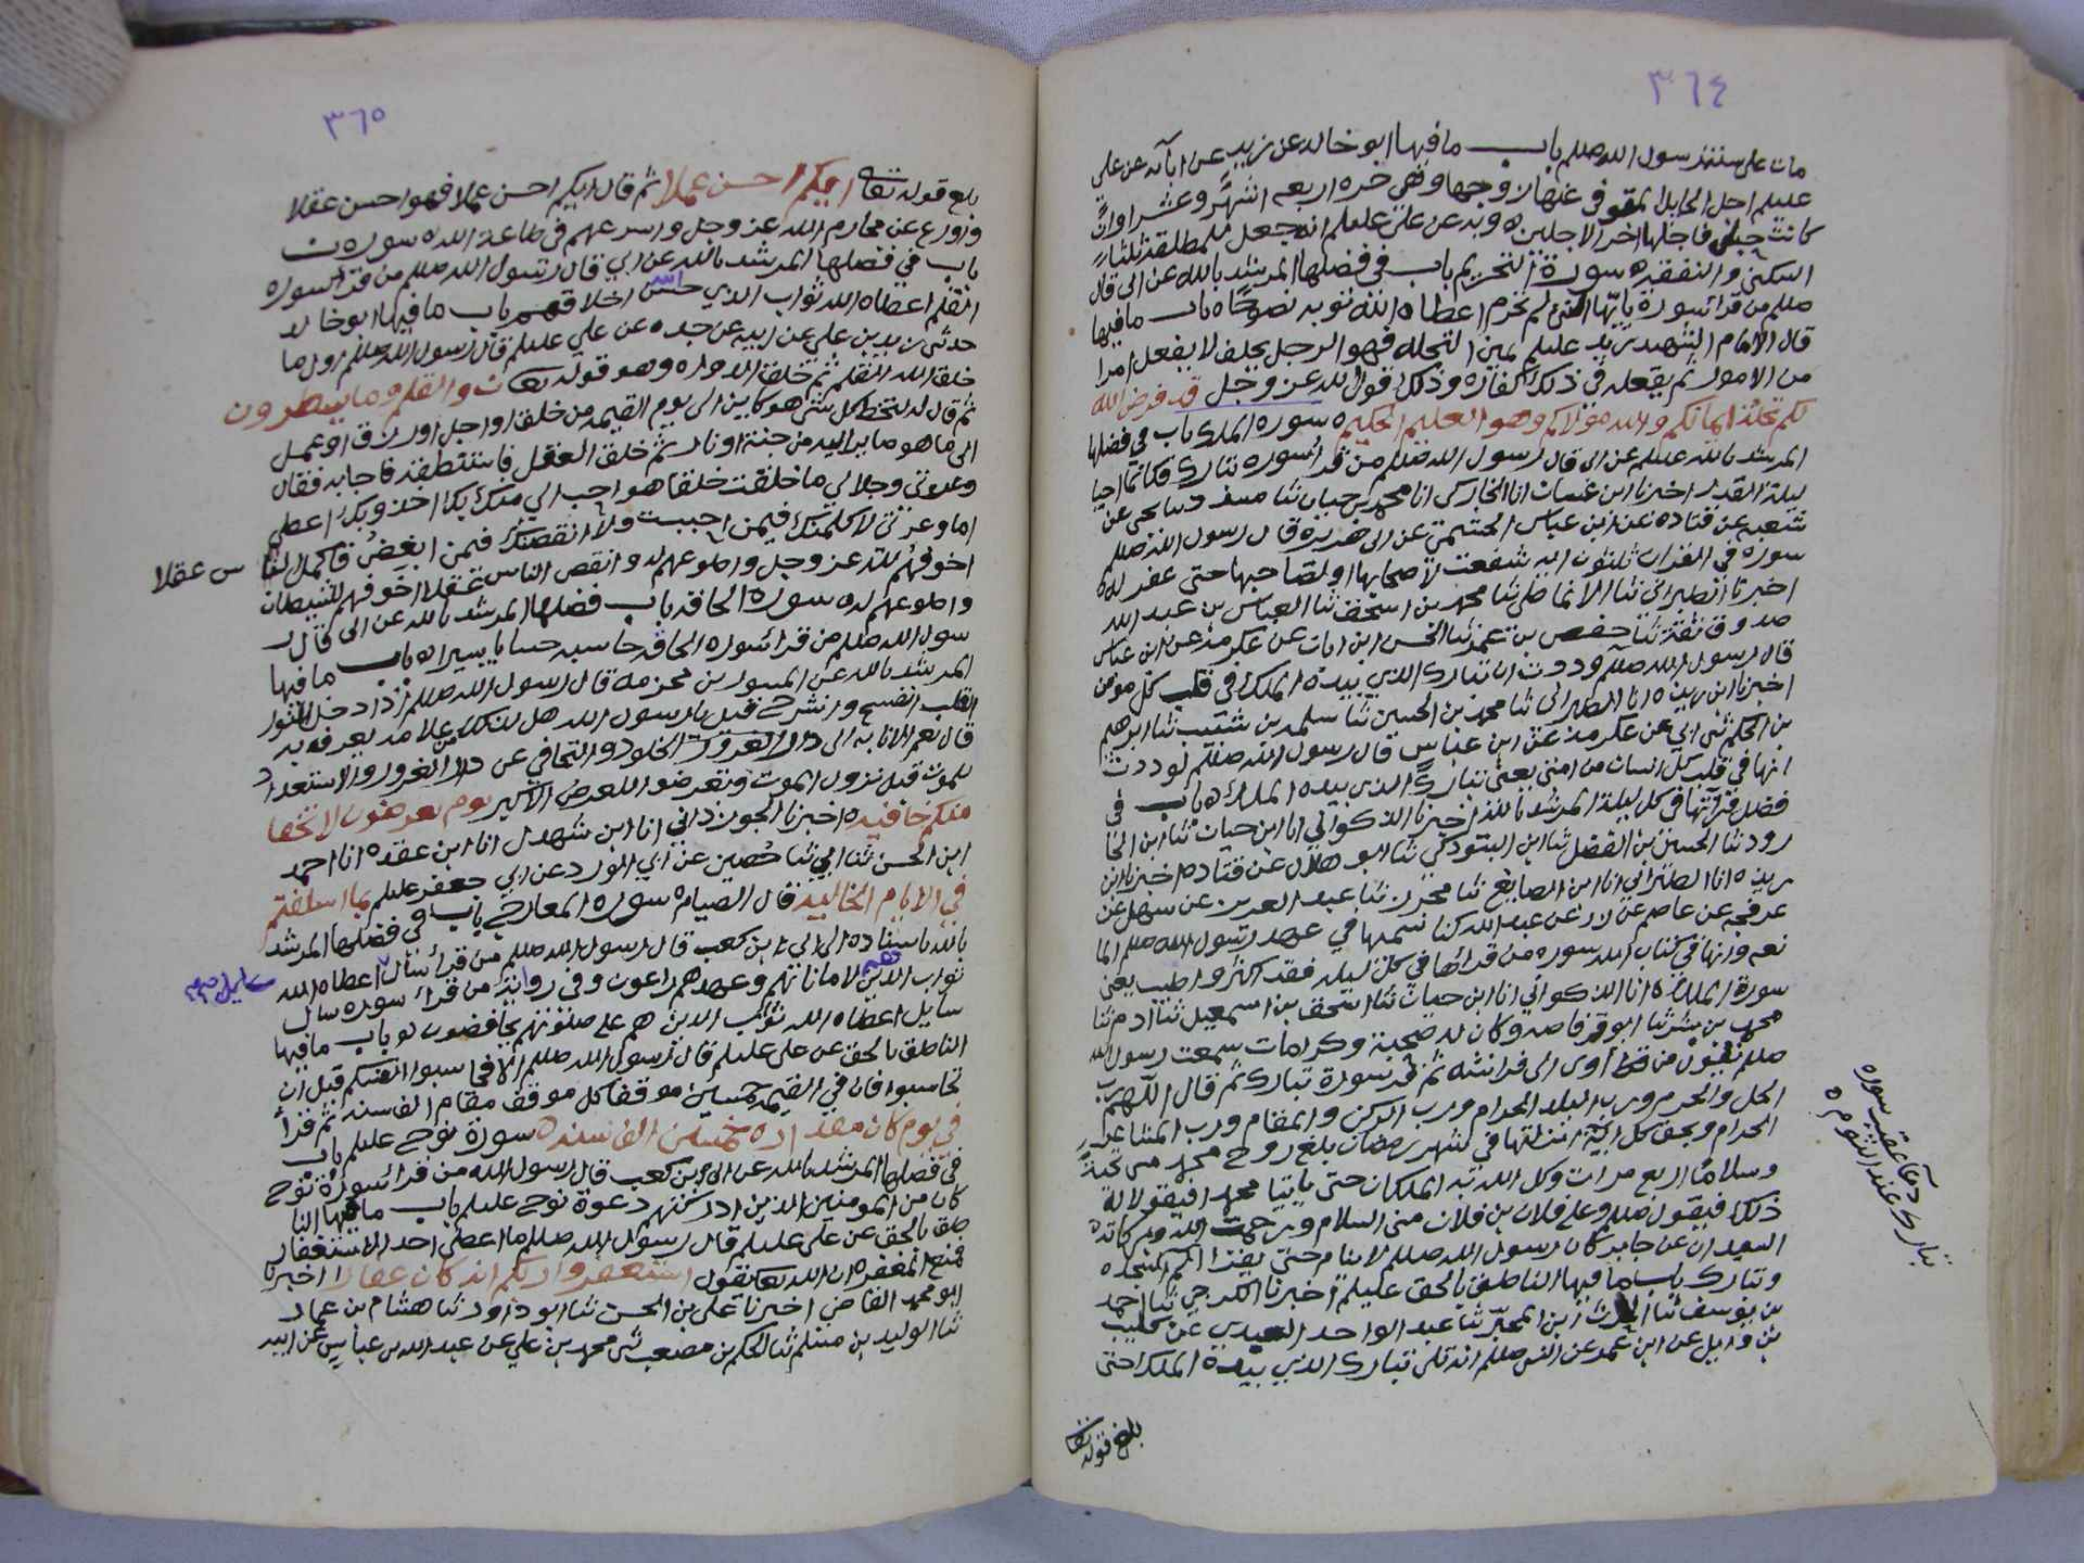 ٣٦٤
مات على سنة رسول الله صللم باب ما فيها ابو خالد عن زيد عن ابآئه عن علي
عليلم اجل الحامل المتوفى عنها زوجها وهي حره اربعه اشهر وعشرا وان
كانت حبلى فاجلها اخر الاجلين ه وبه عن علي عليلم انه جعل للمطلقة ثلثا
السكنى والنفقه ه سورة التحريم باب في فضلها المرشد بالله عن ابي قال
صللم من قرأ سورة يا ايها النبي لم تحرم اعطاه الله توبه نصوحًا ه باب ما فيها
قال الامام الشهيد زيد عليلم يمين التحله فهو الرجل يحلف لا يفعل امرا
من الامور ثم يفعله في ذلك الكفاره وذلك قول الله عز وجل قد فرض الله
لكم تحلة ايمانكم والله مولاكم وهو العليم الحكيم ه سوره الملك باب في فضلها
المرشد بالله عليلم عن ابي قال رسول الله صللم من قرأ سوره تبارك فكانما احيا
ليلة القدر اخبرنا ابن غسان انا الخاركي انا محمد بن حيان ثنا
شعبه عن قتاده عن ابن عباس الجشمي عن ابي هريرة قال رسول الله صللم
سوره في القران ثلثون ايه شفعت لاصحابها او لصاحبها حتى غفر له ه
اخبرنا الطبراني ثنا الانماطي ثنا محمد بن اسحق ثنا العباس بن عبد الله
صدوق ثقة ثنا حفص بن عمر ثنا الحسن ابن ابان عن عكرمه عن ابن عباس
قال رسول الله صللم وددت ان تبارك الذي بيده الملك في قلب كل مومن
اخبرنا ابن ريذه انا الطبراني ثنا محمد بن الحسين ثنا سلمه بن شبيب ثنا ابرهيم
بن الحكم ثنى ابي عن عكرمه عن ابن عباس قال رسول الله صللم لوددت
انها في قلب كل انسان من امتي يعني تبارك الذي بيده الملك ه باب في
فضل قرآتها في كل ليلة المرشد بالله اخبرنا الذكواني انا ابن حيان ثنا ابن الجا
رود ثنا الحسين بن الفضل ثنا ابن التبوذكي ثنا ابو هلال عن قتاده اخبرنا ابن
ريذه انا الطبراني انا ابن الصايغ ثنا محرز ثنا عبد العزيز عن سهيل عن
عرفجه عن عاصم عن زر عن عبد الله كنا نسميها في عهد رسول الله صللم الما
نعه وانها في كتاب الله سوره من قرأها في كل ليله فقد اكثر واطيب يعني
سورة الملك ه انا الذكواني انا ابن حيان ثنا اسحق بن اسمعيل ثنا ادم ثنا
محمد بن بشر ثنا ابو قرصافه وكان له صحبة وكرامات سمعت رسول الله
صللم يقول من اوى الى فراشه ثم قرأ سورة تبارك ثم قال اللهم رب
الحل والحرم ورب البلد الحرام ورب الركن والمقام ورب المشاعر
الحرام وبحق كل اية انزلتها في شهر رمضان بلغ روح محمد مني تحية
وسلامًا اربع مرات وكل الله به الملكان حتى ياتيا محمدا فيقولا له
ذلك فيقول صللم وعلى فلان بن فلان منى السلام ورحمت الله وبركاته
السيدان عن جابر كان رسول الله صللم لا ينام حتى يقرا الم السجده
وتبارك باب ما فيها الناطق بالحق عليلم اخبرنا الكرجي ثنا احمد
بن يوسف ثنا الحارث ابن المحبر ثنا عبد الواحد العبدي عن كليب
بن وايل عن ابن عمر عن النبي صللم انه تلى تبارك الذي بيده الملك حتى
دعآ عقيب سوره
تبارك عند النوم ه
بلغ قوله تعا
٣٦٥
بلغ قوله تعالى ايكم احسن عملا ثم قال ايكم احسن عملا فهو احسن عقلا
واورع عن محارم الله عز وجل واسرعهم في طاعة الله ه سوره ن
باب في فضلها المرشد بالله عن ابي قال رسول الله صللم من قرأ سوره
القلم اعطاه الله ثواب الذي حسن الله اخلاقهم باب ما فيها ابو خالد
حدثنى زيد بن علي عن ابيه عن جده عن علي عليلم قال رسول الله صللم اول ما
خلق الله القلم ثم خلق الدواه وهو قوله تعا ن والقلم وما يسطرون
ثم قال له لتخط كل شى هو كاين الى يوم القيمه من خلق او اجل او رزق او عمل
الى ما هو صاير اليه من جنة او نار ثم خلق العقل فاستنطقه فاجابه فقال
وعزتي وجلالي ما خلقت خلقا هو احب الي منك بك اخذ وبك اعطي
اما وعزتي لاكملنك فيمن احببت ولانقصنك فيمن ابغضت فاكمل الناس عقلا
اخوفهم لله عز وجل واطوعهم له وانقص الناس عقلا اخوفهم للشيطان
واطوعهم له ه سورة الحاقه باب فضلها المرشد بالله عن ابي قال ر
سول الله صللم من قرأ سوره الحاقه حاسبه حسابا يسيرا ه باب ما فيها
المرشد بالله عن المسور بن مخرمه قال رسول الله صللم اذا دخل النور
القلب انفسح وانشرح قيل يا رسول الله هل لذلك من علامه يعرف به
قال نعم الانابه الى دار الخلود والتجافي عن دار الغرور والاستعداد
للموت قبل نزول الموت وتعرضوا للعرض الاكبر يوم تعرضون لا تخفا
منكم خافيه ه اخبرنا الجوزداني انا ابن شهدل انا ابن عقده انا احمد
ابن الحسن ثنا ابي ثنا حصين عن ابي الورد عن ابي جعفر عليلم بما اسلفتم
في الايام الخاليه قال الصيام ه سورة المعارج باب في فضلها المرشد
بالله باسناده الى ابي ء بن كعب قال رسول الله صللم من قرأ سأل اعطاه الله
ثواب الذين هم لاماناتهم وعهدهم راعون وفي رواية من قرأ سوره سال
سايل اعطاه الله ثواب الذين هم على صلوتهم يحافضون ه باب ما فيها
الناطق بالحق عن على عليلم قال رسول الله صللم الا فحاسبوا انفسكم قبل ان
تحاسبوا فان في القيمه خمسين موقفا كل موقف مقام الف سنه ثم قرأ
في يوم كان مقداره خمسين الف سنه ه سورة نوح عليلم باب
في فضلها المرشد بالله عن ابي بن كعب قال رسول الله من قرأ سورة نوح
كان من المومنين الذين ادركتهم دعوة نوح عليلم باب ما فيها النا
طق بالحق عن على عليلم قال رسول الله صللم ما اعطي احد الاستغفار
فمنع المغفره ان الله تعا يقول استغفروا ربكم انه كان غفارا اخبرنا
ابو محمد القاضي اخبرنا علي بن الحسن ثنا ابو داود ثنا هشام بن عمار
ثنا الوليد بن مسلم ثنا الحكم بن مصعب ثنى محمد بن علي عن عبد الله بن عباس عن ابيه